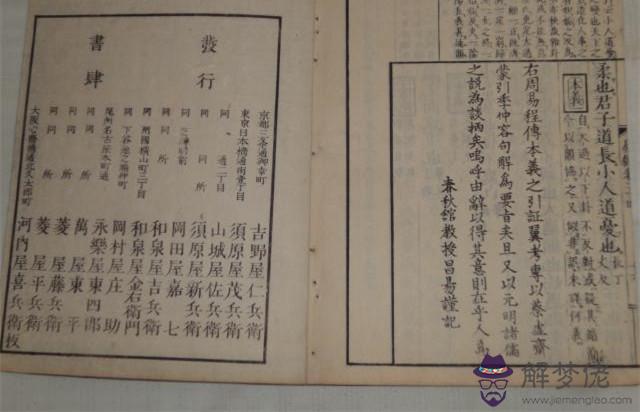 柔也君子道長小人道憂也
長丁
丈反
本義
自大過以下卦不反對或疑其錯簡
今以韻協之又似非誤未詳何義
右周易程傳本義之引証翼考專以蔡虛齋
蒙引李仲容句解為要旨矣且又以元明諸儒
之説為談柄矣嗚呼由辭以得其意則在乎人焉
春秋舘教授昌易謹記
發行
書肆
京都三条通御幸町 吉野屋仁兵衛
東京日本橋通南壹丁目 須原屋茂兵衛
同 通二丁目 山城屋佐兵衛
同 同所 須原屋新兵衛
同 芝神明前 岡田屋嘉七
同 同所 和泉屋吉兵衛
同 兩國橫山町三丁目 和泉屋金右衛門
同 下谷池之端仲町 岡村屋庄助
尾州名古屋本町通 永樂屋東四郎
同 同所 萬屋東平
同 同所 菱屋藤兵衛
同 同所 菱屋平兵衛
大阪心斎橋通北久太郎町 河内屋喜兵衛板
解梦佬
www.jiemenglao.com